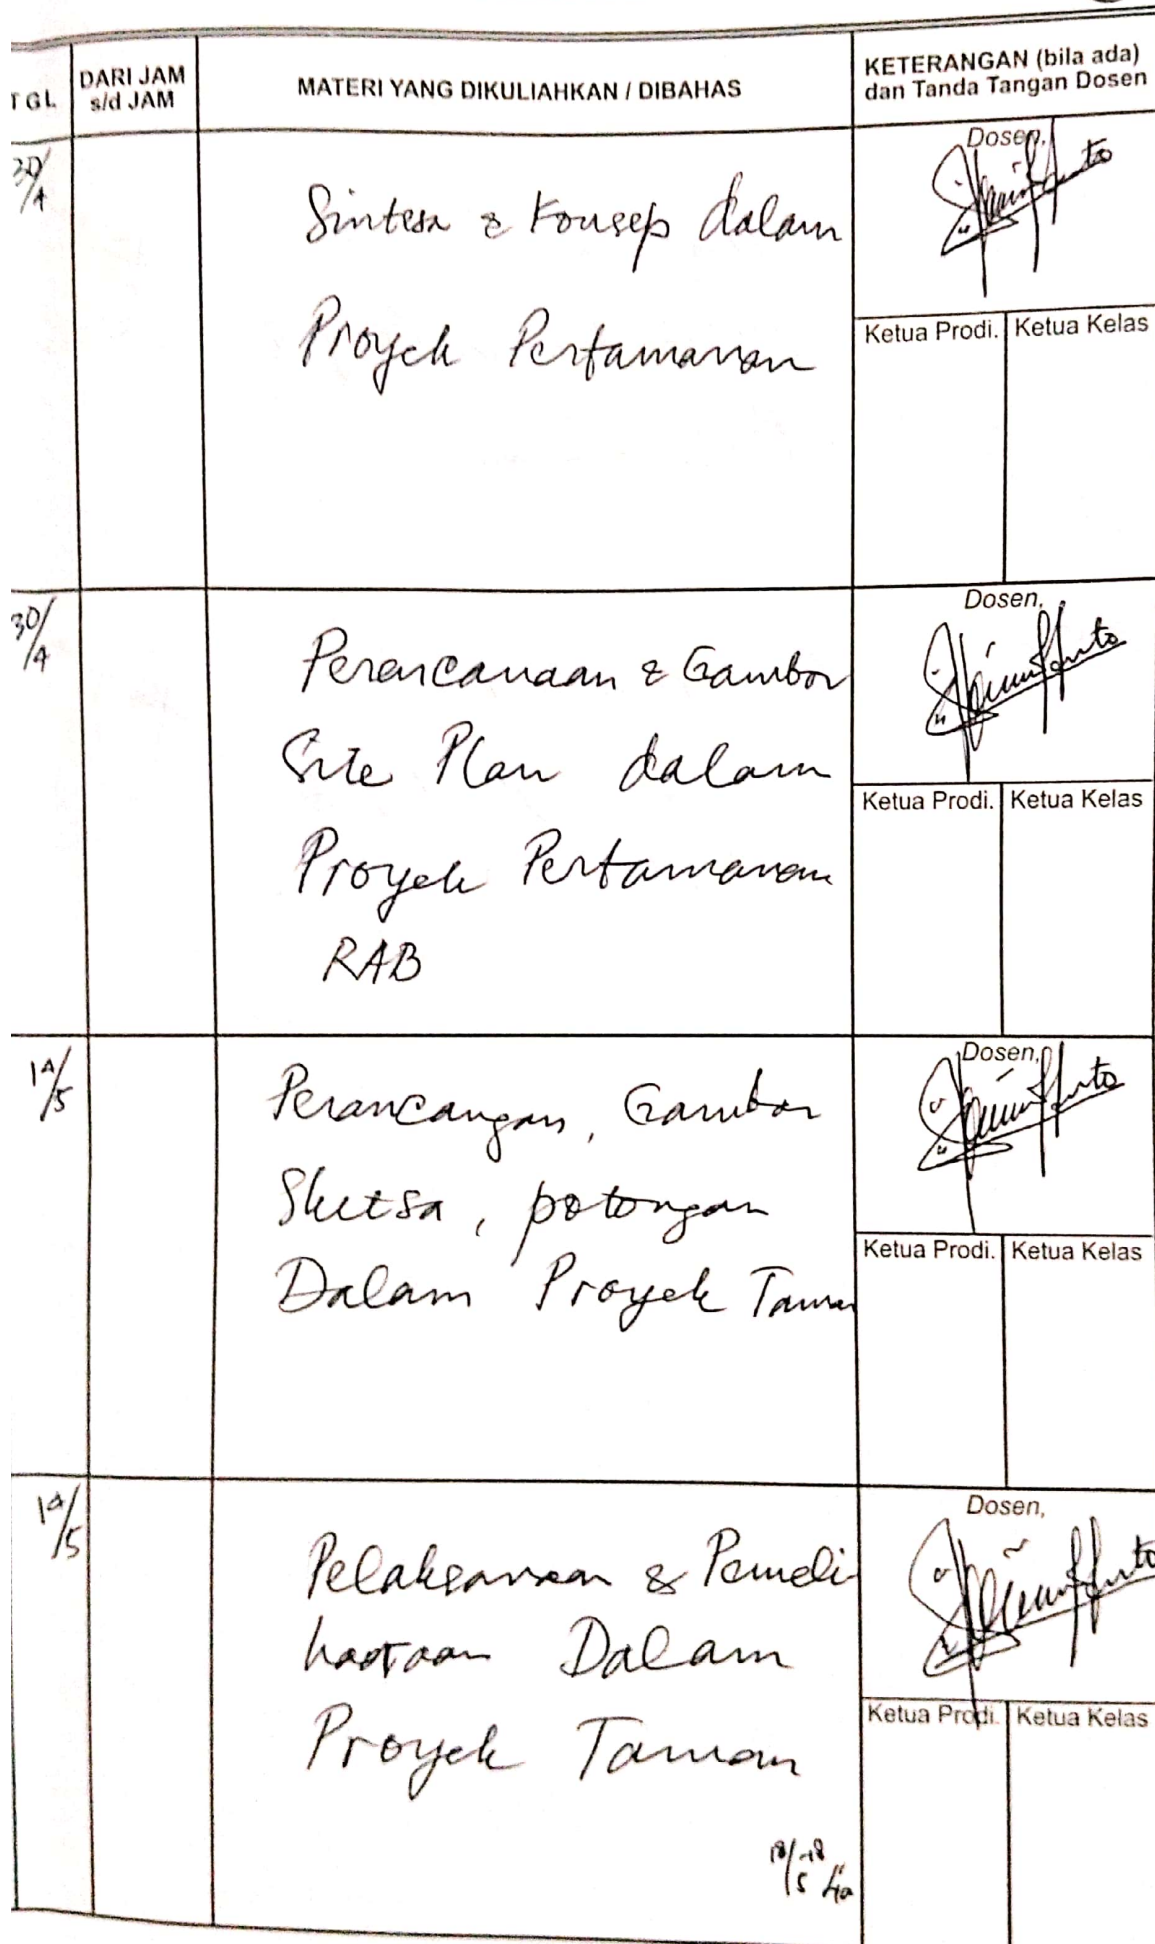 TGL
DARI JAM
s/d JAM
MATERI YANG DIKULIAHKAN / DIBAHAS
KETERANGAN (bila ada)
dan Tanda Tangan Dosen
30/4
Sintesa & Konsep dalam
Proyek Pertamanan
Dosen,
Ketua Prodi. Ketua Kelas
30/4
Perencanaan & Gambar
Site Plan dalam
Proyek Pertamanan
RAB
Dosen,
Ketua Prodi. Ketua Kelas
14/5
Perancangan, Gambar
Sketsa, potongan
Dalam Proyek Taman
Dosen,
Ketua Prodi. Ketua Kelas
14/5
Pelaksanaan & Pemeli-
haraan Dalam
Proyek Taman
18/5-18
Dosen,
Ketua Prodi. Ketua Kelas